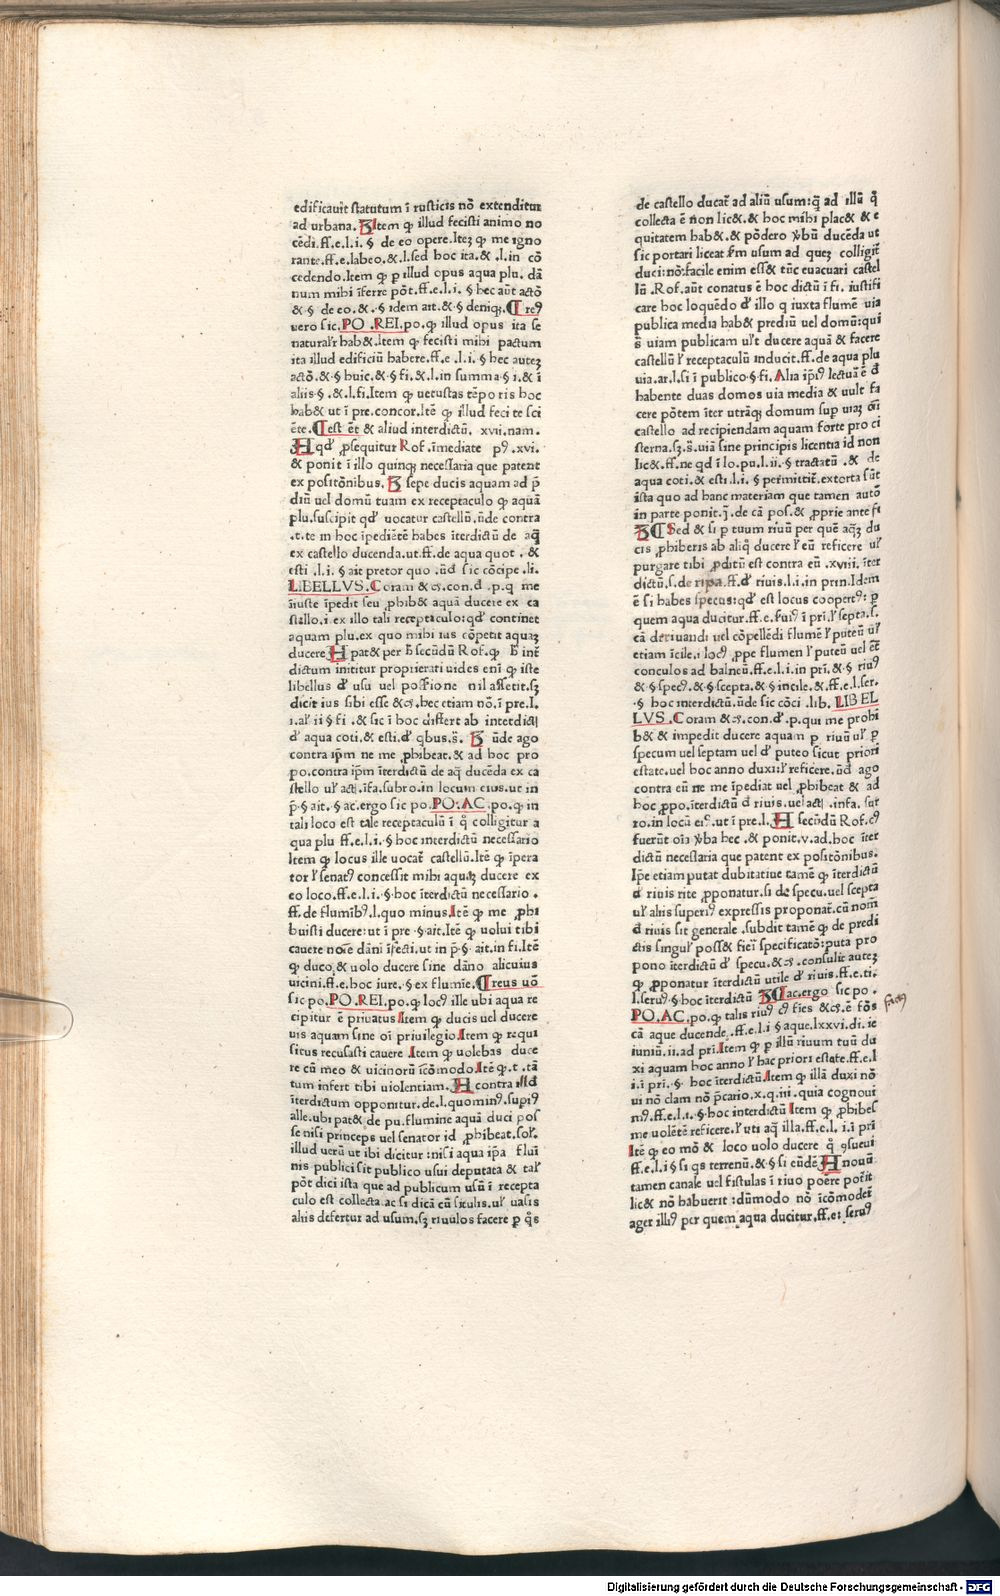 edificauit statutum ī rusticis nō extenditur
ad urbana. Item ꝙ illud fecisti animo no
cēdi.ff.e.l.i. § de eo opere. Iteʒ ꝙ me igno
rante.ff.e.labeo.&.l.sed hoc ita.&.l.in cō
cedendo. Item ꝙ p illud opus aqua plu. dā
num mihi īferre pōt.ff.e.l.i. § hec aūt actō
&·§ de eo.&.·§ idem ait.&·§ deniqʒ. re⁹
uero sic. PO .REI.po.ꝙ illud opus ita se
natural'r hab&. Item ꝙ fecisti mihi pactum
ita illud edificiū habere.ff.e .l.i. § hec auteʒ
actō.&·§ huic.&·§ fi.&.l.in summa·§ i.& ī
aliis·§ .&.l.fi. Item ꝙ uetustas tēpo ris hoc
hab& ut ī pre.concor. Itē ꝙ illud feci te sci
ēte. est ēt & aliud interdictū. xvii. nam.
H qd' ꝓsequitur Rof. īmediate p⁹ .xvi.
& ponit ī illo quinqʒ necessaria que patent
ex positōnibus. sepe ducis aquam ad p̄
diū uel domū tuam ex receptaculo ꝙ aquā
plu. suscipit qd' uocatur castellū. ūde contra
.t. te in hoc īpediētē habes īterdictū de aq̄
ex castello ducenda. ut.ff.de aqua quot . &
esti .l.i. § ait pretor quo .ūd' sic cōcipe .li.
LIBELLVS. Coram & cs. con. d .p.q me
īiuste īpedit seu ꝓhib& aquā ducere ex ca
stello.i. ex illo tali receptaculo: qd' continet
aquam plu. ex quo mihi ius cōpetit aquaʒ
ducere H pat& per h̄ secūdū Rof. ꝙ h̄ int̄
dictum inititur proprietati uides enī ꝙ iste
libellus d' usu uel possione nil asserit. sʒ
dicit ius sibi esse & cs. hec etiam nō. ī pre.l.
i. al' ii § fi . & sic ī hoc differt ab interdict
d' aqua coti. & esti. d' qbus. s̄. ūde ago
contra ip̄m ne me ꝓhibeat. & ad hoc pro
po. contra ip̄m īterdictū de aq̄ ducēda ex ca
stello ul' act. īfa. subro. in locum eius. ut in
p̄·§ ait. § ac. ergo sic po. PO. AC. po. ꝙ in
tali loco est tale receptaculū ī q̄ colligitur a
qua plu ff.e.l.i. § hoc interdictū necessario
Item ꝙ locus ille uocat̄ castellū. Itē ꝙ īpera
tor l' senat⁹ concessit mihi aquāʒ ducere ex
eo loco.ff.e.l.i. § hoc īterdictū necessario .
ff. de flumīb⁹. l. quo minus. Itē ꝙ me ꝓhi
buisti ducere: ut ī pre ·§ ait. Itē ꝙ uolui tibi
cauere noīe dāni īfecti. ut in p̄·§. ait. in fi. Itē
ꝙ duco, & uolo ducere sine dāno alicuius
uicini.ff.e. hoc iure. § ex flumīe. reus uō
sic po. PO. REI. po. ꝙ loc⁹ ille ubi aqua re
cipitur ē priuatus Item ꝙ ducis uel ducere
uis aquam sine oī priuilegio. Item ꝙ requi
situs recusasti cauere. Item ꝙ uolebas duce
re cū meo & uicinorū īcōmodo. Itē ꝙ.t. tā
tum infert tibi uiolentiam. H contra istud
īterdictum opponitur. de.l. quomin⁹. supi⁹
alle. ubi pat& de pu. flumine aquā duci pos
se nisi princeps uel senator id ꝓhibeat. sol'.
illud uerū ut ibi dicitur : nisi aqua ip̄a flui
nis publici sit publico usui deputata & tal'
pōt dici ista que ad publicum usū ī recepta
culo est collecta. ac si dicā cū situlis. ul' uasis
aliis defertur ad usum. sʒ riuulos facere p q̄s
de castello ducat̄ ad aliū usum: q̄ ad illū q̄
collecta ē non lic&. & hoc mihi plac& & e
quitatem hab&. & pōdero v̄bū ducēda ut
sic portari liceat s̄m usum ad queʒ colligit̄
duci: nō. facile enim ess& tūc euacuari castel
lū .Rof. aūt conatus ē hoc dictū ī fi. iustifi
care hoc loquēdo d' illo q iuxta flumē uia
publica media hab& prediū uel domū: qui
s̄ uiam publicam ul't ducere aquā & facere
castellū l' receptaculū inducit.ff. de aqua plu
uia. ar.l. si ī publico·§ fi. Alia ip̄i⁹ lectura ē d'
habente duas domos uia media & uult fa
cere pōtem īter utrāqʒ domum sup uiaʒ
castello ad recipiendam aquam forte pro ci
sterna. sʒ. s̄. uiā sine principis licentia id non
lic&.ff. ne qd ī lo. pu. l. ii. § tractatū .& de
aqua coti. & esti. l. i. § permittit̄. extorta sūt
ista quo ad hanc materiam que tamen autō
in parte ponit. j̄. de cā pos. & ꝓprie ante fi
Sed & si p tuum riuū per quē aqʒ du
cis ꝓhiberis ab aliq̄ ducere l' eū reficere ul'
purgare tibi ꝓditū est contra eū .xviii. īter
dictū. s. de ripa.ff. d' riuis. l. i. in prin. Idem
ē si habes specus: qd' est locus coopert⁹: p
quem aqua ducitur.ff.e. fui⁹ ī pri. l' septa. s.
cā deriuandi uel cōpellēdi flumē l' puteū ul'
etiam īcile. i loc⁹ ꝓpe flumen l' puteū uel ēt
conculos ad balneū.ff.e.l.i. in pri. &·§ riu⁹
&·§ spec⁹. &·§ scepta. & § incile. &.ff.e.l. ser.
·§ hoc interdictū. ūde sic cōci .lib. LIBEL
LVS. Coram & cs. con. d' .p. qui me prohi
b& & impedit ducere aquam p riuū ul' p
specum uel septam uel d' puteo sicut priori
estate. uel hoc anno duxi: l' reficere. ūd' ago
contra eū ne me īpediat uel ꝓhibeat & ad
hoc ꝓpo. īterdictū d' riuis. uel act. infa. sur
ro. in locū ei⁹. ut ī pre. l. H secūdū Rof. c⁹
fuerūt oīa v̄ba hec . & ponit. v. ad. hoc īter
dictū necessaria que patent ex positōnibus.
Ip̄e etiam putat dubitatiue tamē ꝙ īterdictū
d' riuis rite ꝓponatur. si de specu. uel scepta
ul' aliis superi⁹ expressis proponat̄. cū nom̄
d' riuis sit generale . subdit tamē ꝙ de predi
ctis singul' poss& fieri specificatō: puta pro
pono īterdictū d' specu. & cs. consulit auteʒ
ꝙ ꝓponatur īterdictū utile d' riuis.ff.e. ti.
l. seru⁹. § hoc īterdictū ac. ergo sic po .
PO. AC. po. ꝙ talis riu⁹ fies & cs. ē fōs
cā aque ducende .ff.e.l.i § aque. lxxvi. di. ie
iuniū. ii. ad pri. Item ꝙ p illū riuum tuū du
xi aquam hoc anno l' hac priori estate.ff.e.l
i. ī pri. ·§· hoc īterdictū. Item ꝙ illā duxi nō
ui nō clam nō p̄cario. x. q. iii. quia cognoui
m⁹.ff.e.l.i. § hoc interdictū Item ꝙ ꝓhibes
me uolētē reficere. l' uti aq̄ illa.ff.e.l. i. ī pri
Itē ꝙ eo mō & loco uolo ducere q̄ ꝯsueui
ff.e.l.i § si qs terrenū. &·§ si eūdē H nouū
tamen canale uel fistulas ī riuo poēre potit
lic& nō habuerit : dūmodo nō īcōmodet̄
ager illi⁹ per quem aqua ducitur.ff.e: seru⁹
Digitalisierung gefördert durch die Deutsche Forschungsgemeinschaft - DFG